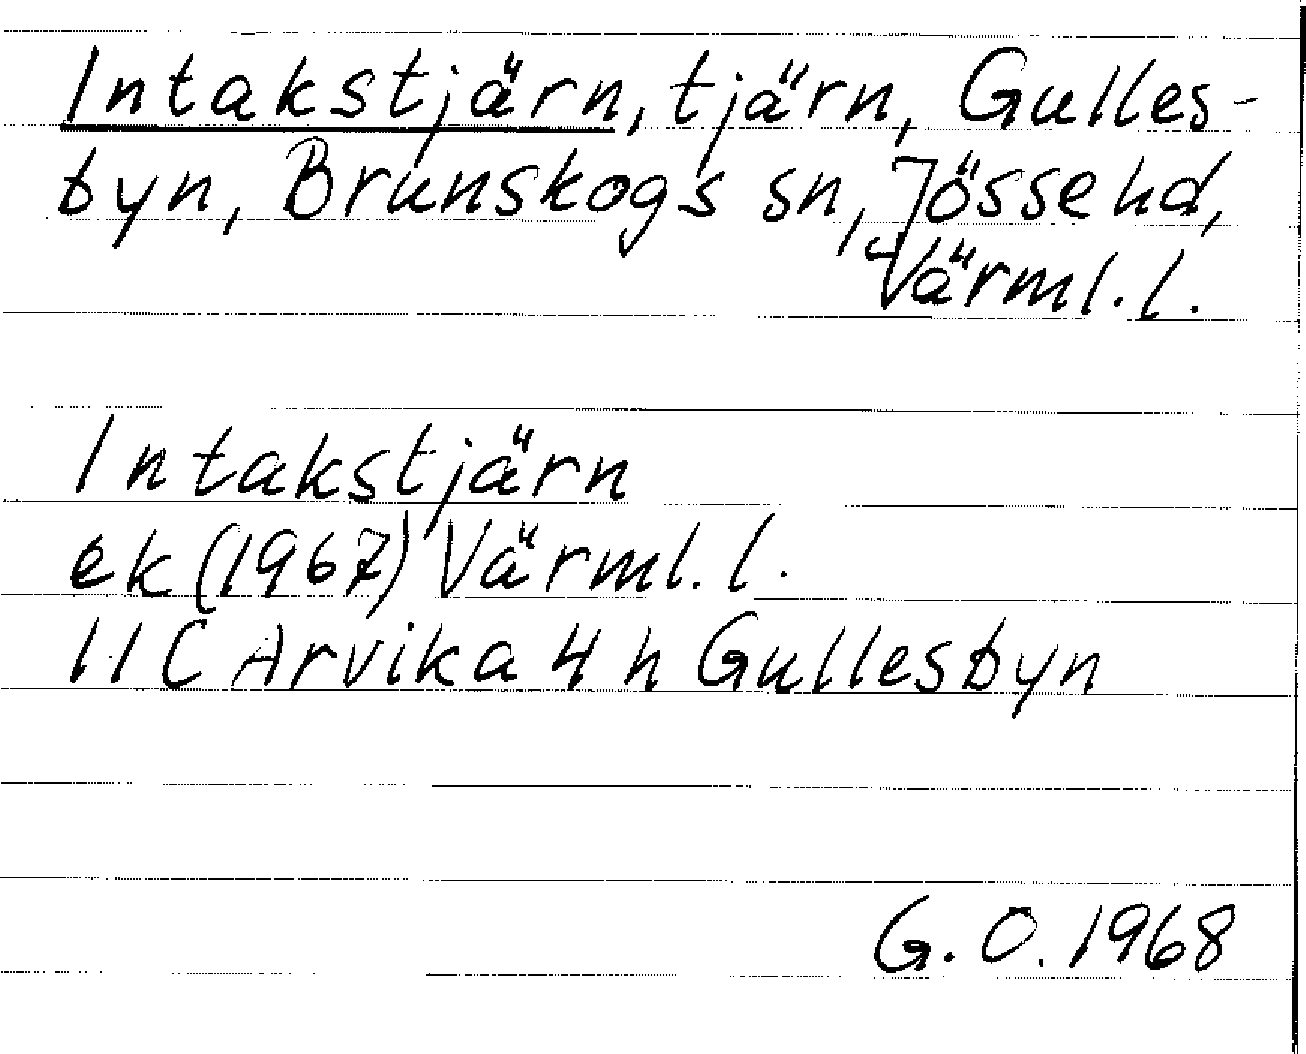 Intakstjärn, tjärn, Gulles-
byn, Brunskogs sn, Jösse hd,
Värml. l.
Intakstjärn
ek (1967) Värml. l.
11 C Arvika 4 h Gullesbyn
G. O. 1968